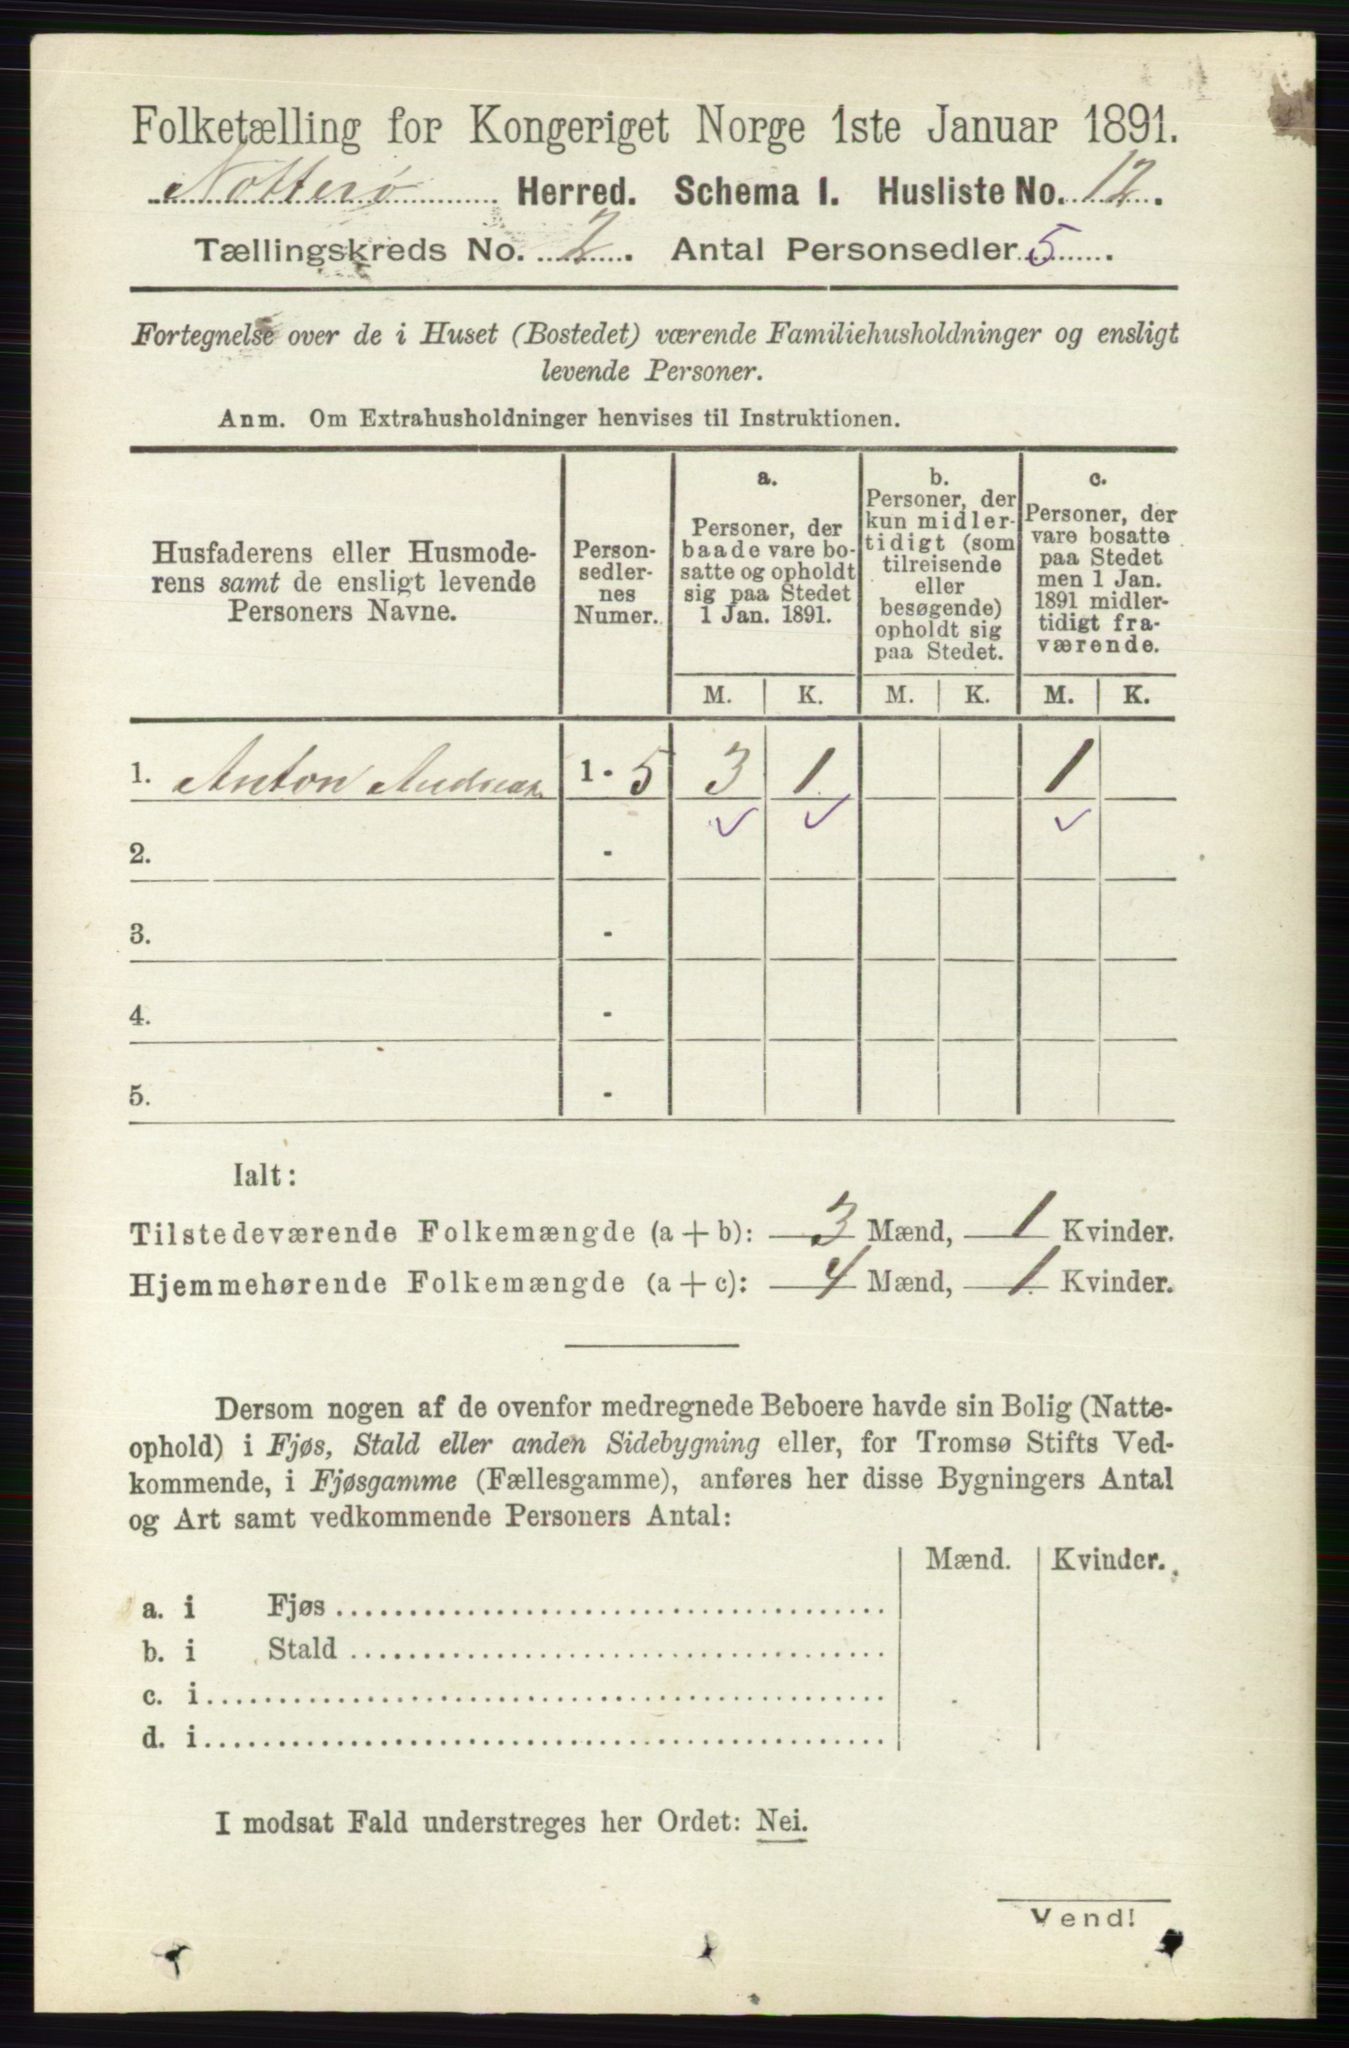 Folketælling for Kongeriget Norge 1ste Januar 1891.
Nøtterø Herred. Schema I. Husliste No. 12.
Tællingskreds No. 2. Antal Personsedler 5.
Fortegnelse over de i Huset (Bostedet) værende Familiehusholdninger og ensligt
levende Personer.
Anm. Om Extrahusholdninger henvises til Instruktionen.
Husfaderens eller Husmode-
rens samt de ensligt levende
Personers Navne.
Person-
sedler-
nes
Numer.
a.
Personer, der
baade vare bo-
satte og opholdt
sig paa Stedet
1 Jan. 1891.
b.
Personer, der
kun midler-
tidigt (som
tilreisende
eller
besøgende)
opholdt sig
paa Stedet.
c.
Personer, der
vare bosatte
paa Stedet
men 1 Jan.
1891 midler-
tidigt fra-
værende.
M. K. M. K. M. K.
1. Anton 1 - 5 3 1 1
2. -
3. -
4. -
5. -
Ialt:
Tilstedeværende Folkemængde (a + b): 3 Mænd, 1 Kvinder.
Hjemmehørende Folkemængde (a + c): 4 Mænd, 1 Kvinder.
Dersom nogen af de ovenfor medregnede Beboere havde sin Bolig (Natte-
ophold) i Fjøs, Stald eller anden Sidebygning eller, for Tromsø Stifts Ved-
kommende, i Fjøsgamme (Fællesgamme), anføres her disse Bygningers Antal
og Art samt vedkommende Personers Antal:
Mænd. Kvinder.
a. i Fjøs
b. i Stald
c. i
d. i
I modsat Fald understreges her Ordet: Nei.
Vend!